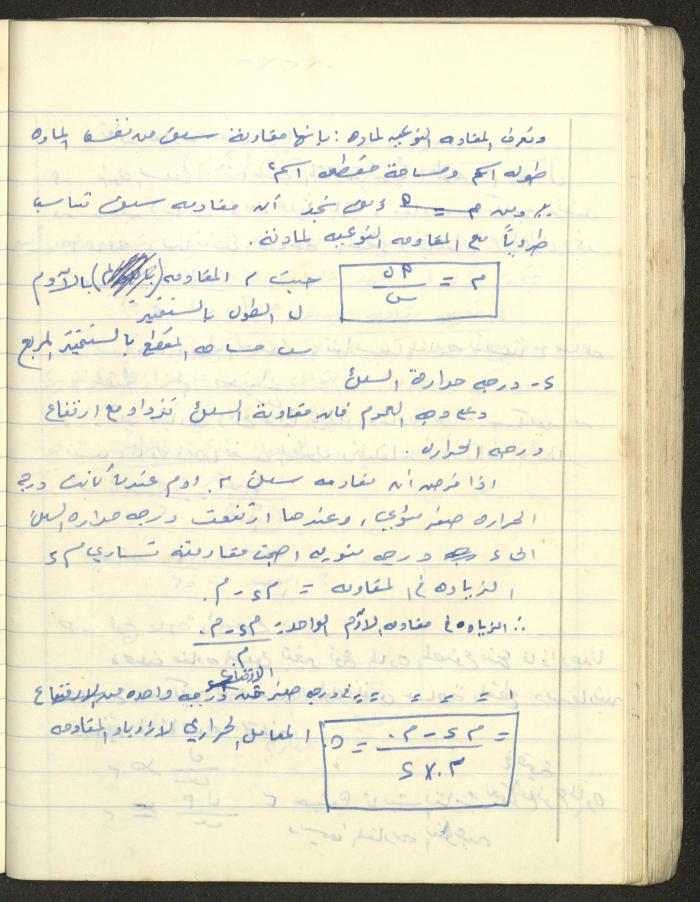 وتعرف المقاومه النوعيه لماده : بانها مقاومة سلك من نفس الماده
طوله ١سم ومساحة مقطعه ١سم٢
ومن م = نجد أن مقاومه سلك تناسب
طردياً مع المقاومه النوعيه لمادته .
م = ل / س حيث م المقاومه بالآوم
ل الطول بالسنتمتر
س مساحه المقطع بالسنتمتر المربع
٢- درجه حرارة السلك
وعلى وجه العموم فان مقاومة السلك تزداد مع ارتفاع
درجه الحراره .
اذا فرض أن مقاومه سلك م. اوم عندما كانت درجه
الحراره صفر مئوي ، وعندما ارتفعت درجه حراره السلك
الى ء درجه مئويه اصبحت مقاومته تساوي م ء
الزياده في المقاومه = م ء - م.
∴ الزياده في مقاومه الاوم الواحد = م ء - م. / م.
" = = = = = في درجه صفر الارتفاع درجه واحده من الارتفاع
= م ء - م. / م. × ء = المعامل الحراري لازدياد المقاومه